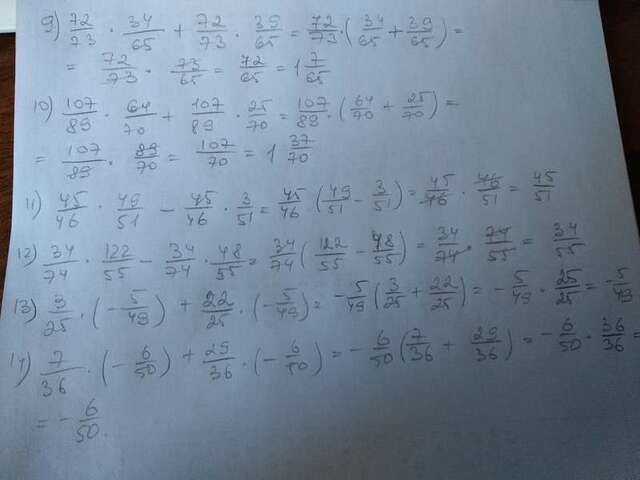 9) 72/73 · 34/65 + 72/73 · 39/65 = 72/73 · (34/65 + 39/65) =
= 72/73 · 73/65 = 72/65 = 1 7/65
10) 107/89 · 64/70 + 107/89 · 25/70 = 107/89 · (64/70 + 25/70) =
= 107/89 · 89/70 = 107/70 = 1 37/70
11) 45/46 · 49/51 - 45/46 · 3/51 = 45/46 · (49/51 - 3/51) = 45/46 · 46/51 = 45/51
12) 34/74 · 122/55 - 34/74 · 48/55 = 34/74 (122/55 - 48/55) = 34/74 · 74/55 = 34/55
13) 3/25 · (- 5/49) + 22/25 · (- 5/49) = - 5/49 (3/25 + 22/25) = - 5/49 · 25/25 = - 5/49
14) 7/36 · (- 6/50) + 29/36 · (- 6/50) = - 6/50 (7/36 + 29/36) = - 6/50 · 36/36 =
= - 6/50.